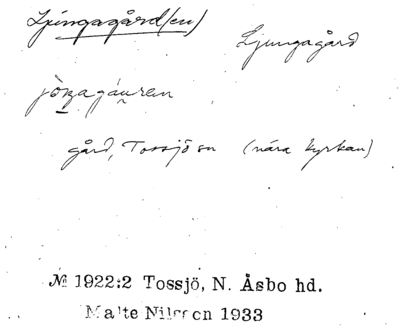 Ljungagård(en)
Ljungagård
gård, Tossjö sn (nära kyrkan)
№ 1922:2 Tossjö, N. Åsbo hd.
Malte Nilsson 1933